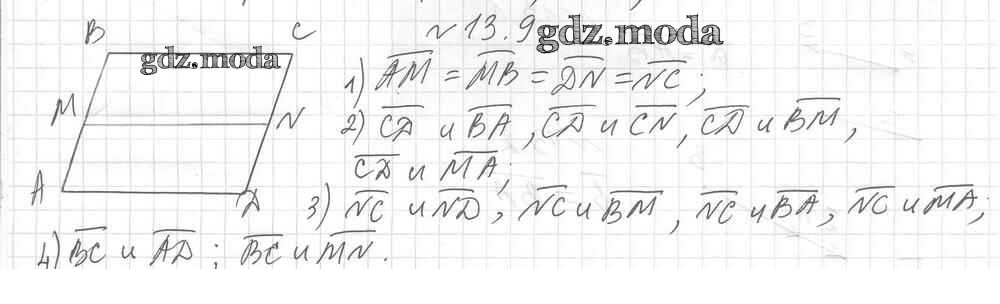 N 13.9 gdz.moda
B C
gdz.moda
1) AM = MB = DN = NC;
M N
2) CD и BA, CD и CN, CD и BM,
CD и MA;
A D
3) NC и ND, NC и BM, NC и BA, NC и MA;
4) BC и AD; BC и MN.